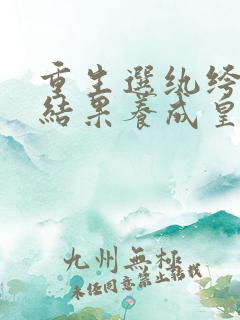 重生選紈絝
結果養成皇
九州無極
未經同意禁止轉載